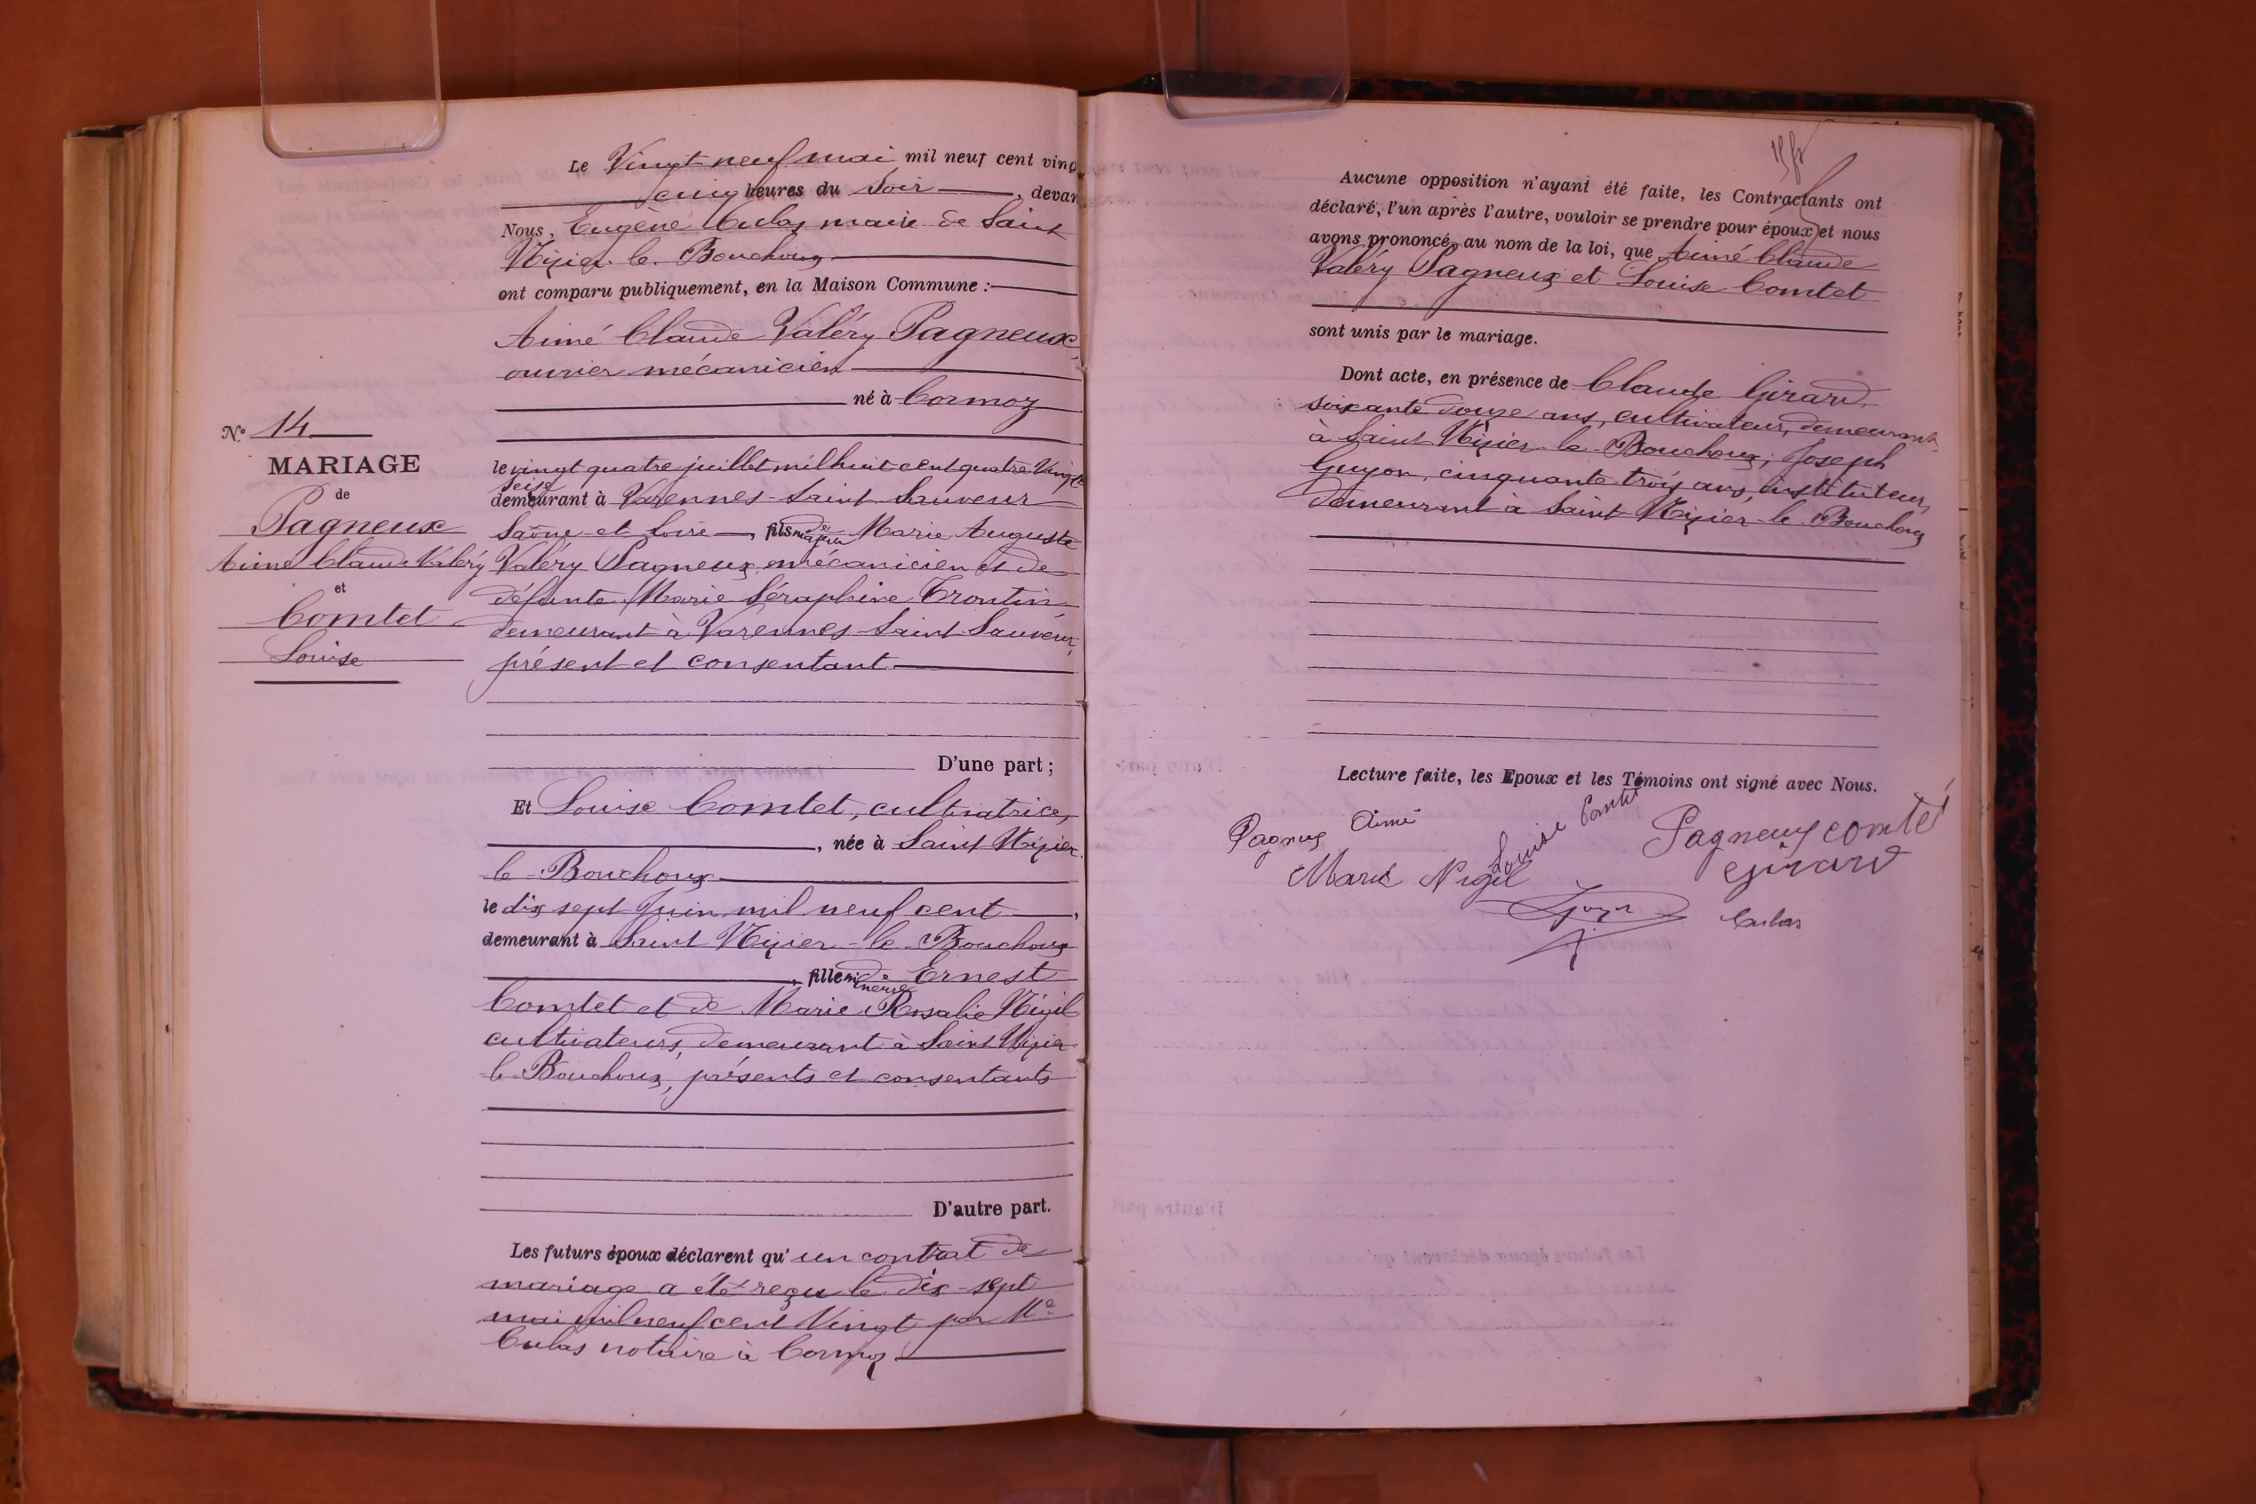 Le Vingt neuf mai mil neuf cent vingt
cinq heures du soir, devan
Nous, Eugène Culas maire de Saint
Nizier-le-Bouchoux
ont comparu publiquement, en la Maison Commune :
Aimé Claude Valéry Pagneux,
ouvrier mécanicien
né à Cormoz
le vingt quatre juillet mil huit cent quatre Vingt
seize
demeurant à Varennes-Saint Sauveur
Saône et Loire, fils majeur de Marie Auguste
Valéry Pagneux mécanicien et de
défunte Marie Séraphine Trontin
demeurant à Varennes Saint Sauveur,
présent et consentant
D'une part ;
Et Louise Comtet, cultivatrice,
, née à Saint Nizier
le-Bouchoux
le dix sept Juin mil neuf cent,
demeurant à Saint Nizier-le-Bouchoux
, fille mineure de Ernest
Comtet et de Marie Rosalie Nizil
cultivateurs, demeurant à Saint Nizier
le-Bouchoux, présents et consentants
D'autre part.
Les futurs époux déclarent qu'un contrat de
mariage a été reçu le dix-sept
mai mil neuf cent Vingt par Me
Culas notaire à Cormoz
N° 14
MARIAGE
de
Pagneux
Aimé Claude Valéry
et
Comtet
Louise
Aucune opposition n'ayant été faite, les Contractants ont
déclaré, l'un après l'autre, vouloir se prendre pour époux et nous
avons prononcé, au nom de la loi, que Aimé Claude
Valéry Pagneux et Louise Comtet
sont unis par le mariage.
Dont acte, en présence de Claude Girard,
soixante douze ans, cultivateur, demeurant
à Saint Nizier-le-Bouchoux; Joseph
Guyon, cinquante trois ans, instituteur,
demeurant à Saint Nizier-le-Bouchoux
Lecture faite, les Epoux et les Témoins ont signé avec Nous.
Pagneux Aimé
Louise Comtet
Pagneux comtet
Marie Nizil
Girard
Guyon
Culas